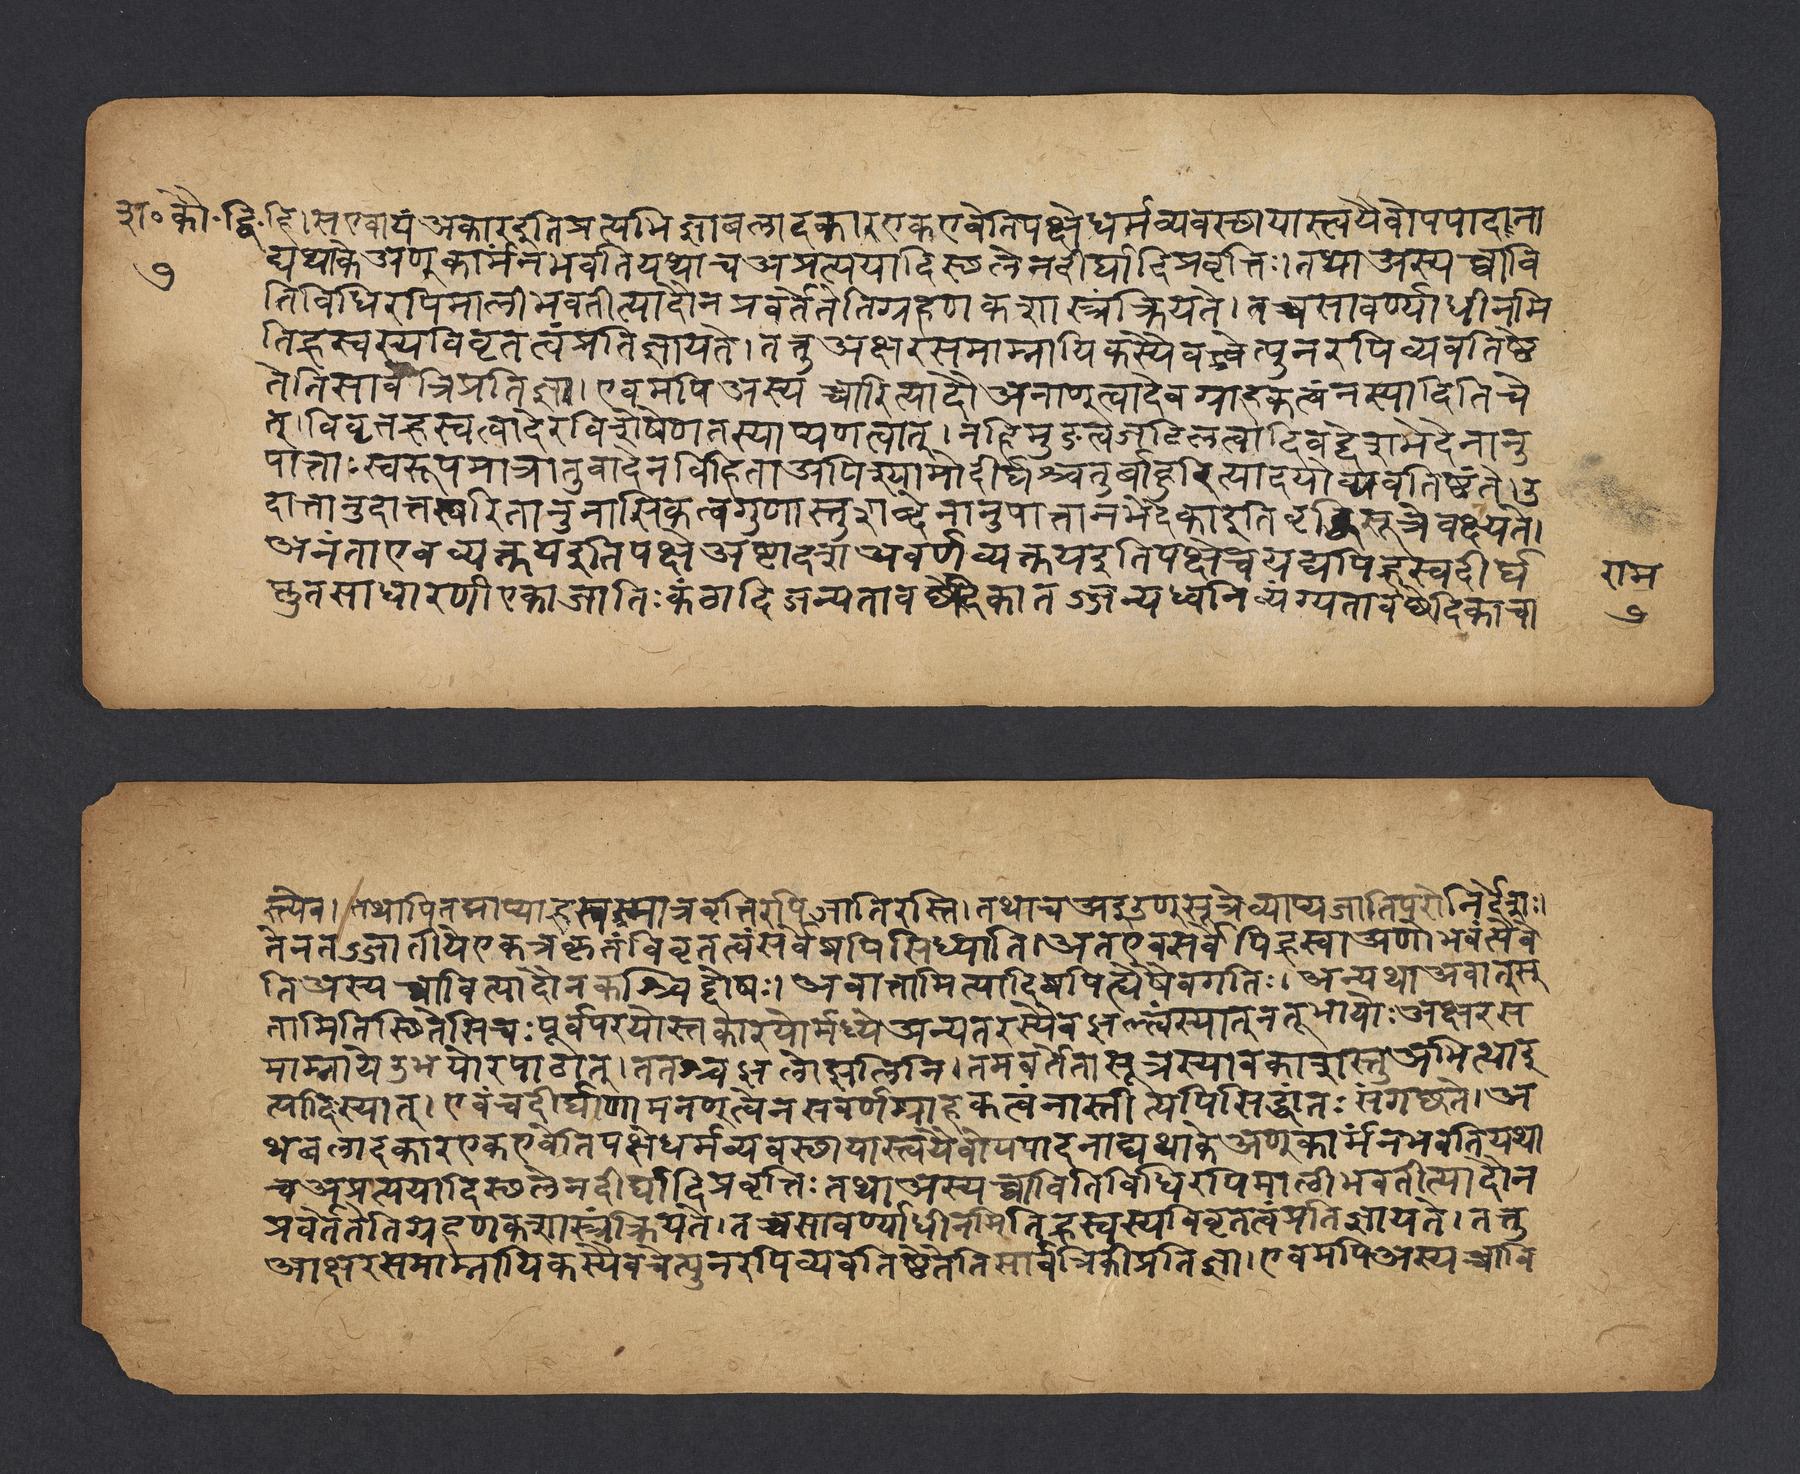 श॰ कौ॰ द्वि॰ हि। स एवायं अकार इति प्रत्यभिज्ञाबलादकार एक एवेति पक्षे धर्मव्यवस्छायास्त्वयैवोपपादाना
७
द्यथाके अणुकार्मं न भवति यथा च अप्रत्ययादिस्छलेन दीर्घादिप्रवृत्तिः। तथा अस्य च्वावि
तिविधिरपि माली भवतीत्यादौ न प्रवर्तेतेति ग्रहणकशास्त्रं क्रियते। तच्च सावर्ण्याधीनमि
ति ह्रस्वस्य विवृतत्वं प्रतिज्ञायते। तत्तु अक्षरसमाम्नायिकस्यैव चेत्पुनरपि व्यवतिष्ठे
तेति सार्वत्रि प्रतिज्ञा। एवमपि अस्य च्वारित्यादौ अनाणुत्वादेव ग्राहकत्वं न स्यादिति चे
त्। विवृतह्रस्वत्वादेरविशेषेण तस्याप्यणत्वात्। नहि मुङत्वजटिलत्वादिवद्देशभेदेनानु
पात्ताः स्वरूपमात्रानुवादेन विहिता अपि श्यामो दीर्घश्चतुर्बाहुरित्यादयो व्यवतिष्ठंते। उ
दात्तानुदात्तस्वरितानुनासिकत्वगुणास्तु शब्देनानुपात्ता न भेदका इति वृद्धिसूत्रे वक्ष्यते।
अनंता एव व्यक्तय इति पक्षे अष्टादश अवर्णव्यक्तय इति पक्षे च यद्यपि ह्रस्वदीर्घ
प्लुतसाधारणी एका जातिः कंठादिजन्यतावछेदिका तज्जन्यध्वनिव्यंग्यतावछेदिका चा
राम
७
स्त्येव। तथापि तद्याप्या ह्रस्वमात्रवृत्तिरपि जातिरस्ति। तथा च अइउणुसूत्रे व्याप्यजातिपरो निर्देशः।
तेन तज्जातीये एकत्र कृतं विवृतत्वं सर्वेष्वपि सिध्यति। अत एव सर्वेपि ह्रस्वा अणो भवंत्येवे
ति अस्य च्वावित्यादौ न कश्चिद्दोषः। अवात्तामित्यादिष्वपि त्येषैव गतिः। अन्यथा अवात्सु
तामिति स्थिते सिचः पूर्वपरयोस्तकारयोर्मध्ये अन्यतरस्यैव झल्त्वं स्यात् न तूभयोः अक्षरस
माम्नाये उभयोरपाठात्। ततश्च झलो झलिति। तमवर्तता सूत्रस्यावकाशस्तु अभित्थाइ
त्यादि स्यात्। एवं च दीर्घाणामनणुत्वेन सवर्णग्राहकत्वं नास्तीत्यपि सिद्धांतः संगछते। अ
थ बलादकार एक एवेति पक्षे धर्मव्यवस्छायास्त्वयैवोपपादनाद्यथाके अणुकार्मं न भवति यथा
च अप्रत्ययादिस्छलेन दीर्घादिप्रवृत्तिः तथा अस्य च्वावितिविधिरपि माली भवतीत्यादौ न
प्रवर्तेतेति ग्रहणकशास्त्रं क्रियते। तच्च सावर्ण्याधीनमिति ह्रस्वस्य विवृतत्वं प्रतिज्ञायते। तत्तु
आक्षरसमाम्नायिकस्यैव चेत्पुनरपि व्यवतिष्ठेतेति सार्वत्रिकी प्रतिज्ञा। एवमपि अस्य च्वावि